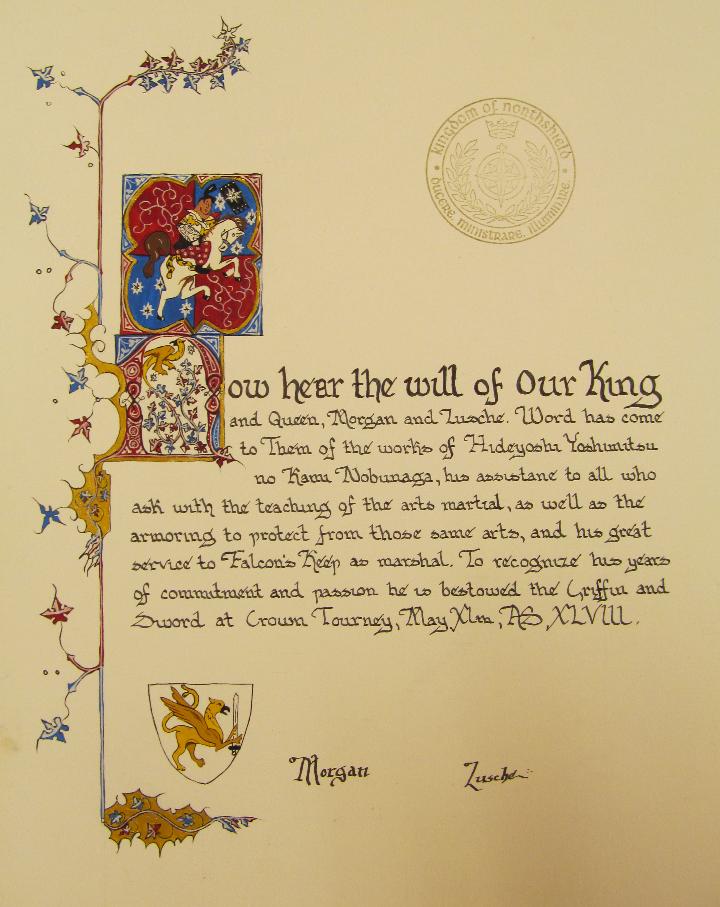 Kingdom of Northshield
Ducere, Ministrare, Illuminare
Now hear the will of Our King
and Queen, Morgan and Zusche. Word has come
to Them of the works of Hideyoshi Yoshimitsu
no Kami Nobunaga, his assistane to all who
ask with the teaching of the arts martial, as well as the
armoring to protect from those same arts, and his great
service to Falcon's Keep as marshal. To recognize his years
of commitment and passion he is bestowed the Griffin and
Sword at Crown Tourney, May, AS, XLVIII.
Morgan Zusche